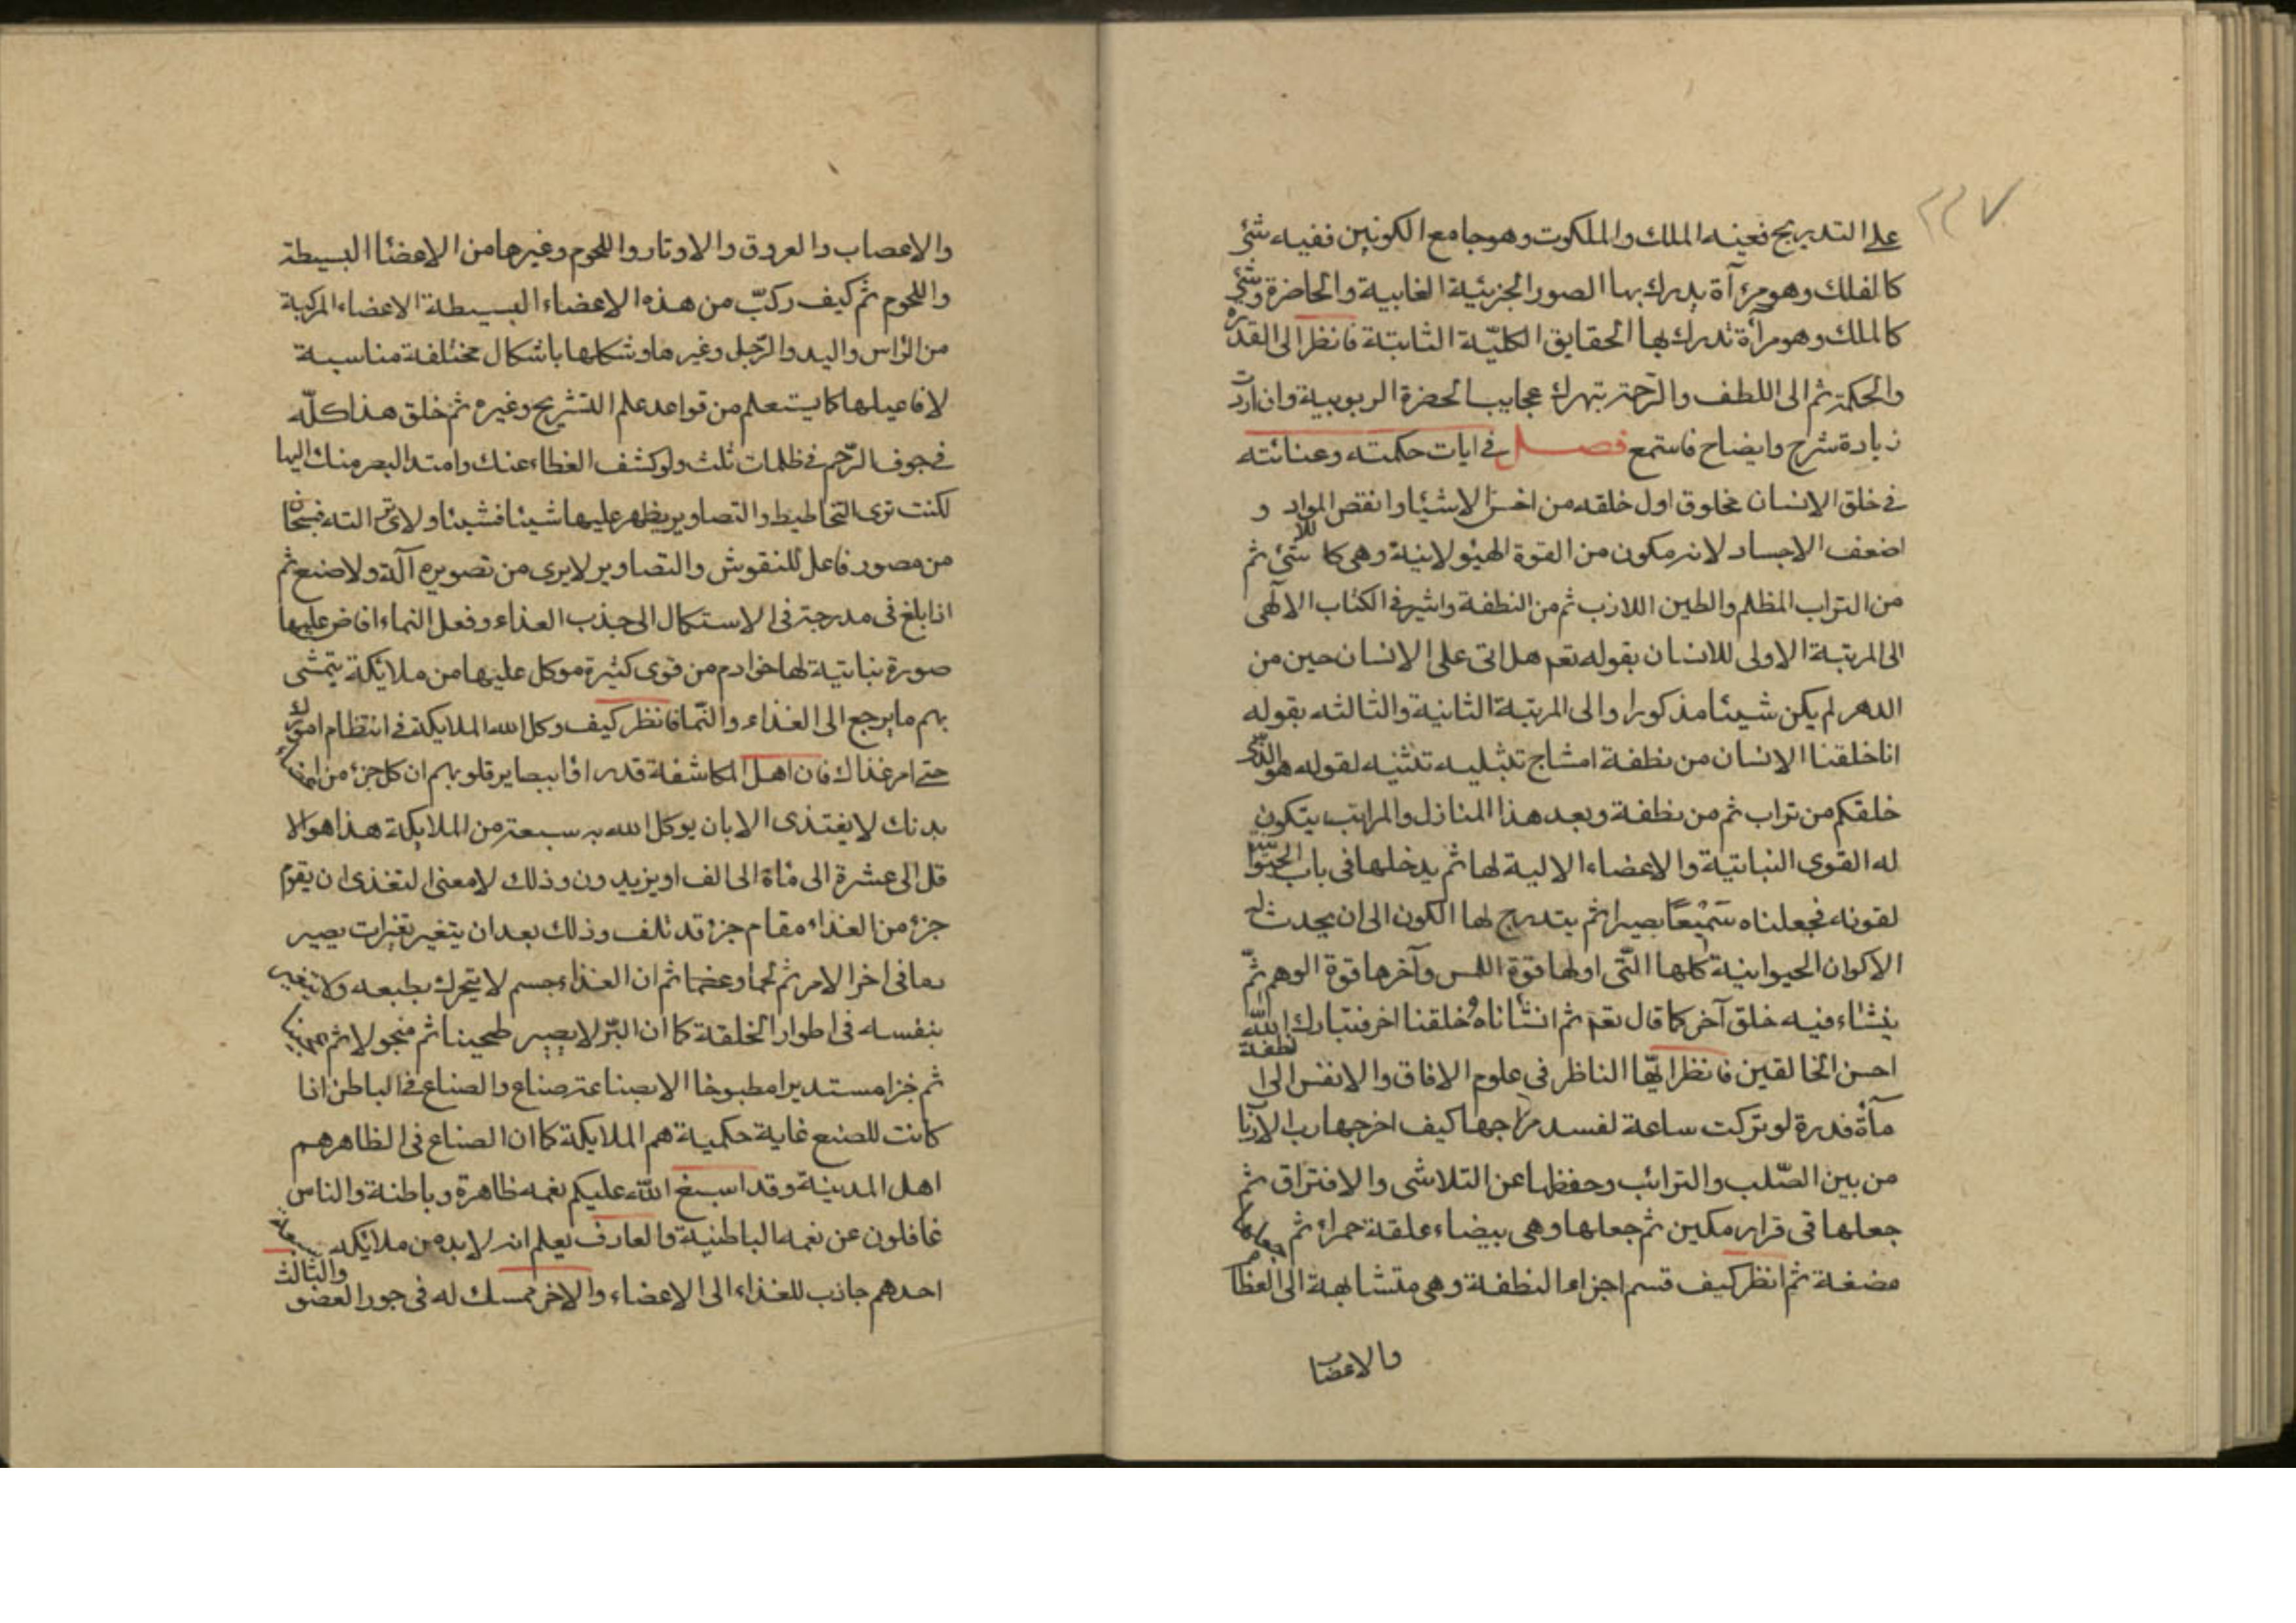 ٢٢٧
على التدريج نعينه الملك والملكوت وهو جامع الكونين ففيه شئ
كالفلك وهو مرآة يدرك بها الصور الجزئية الغايبية والحاضرة وشئ
كالملك وهو مرآة تدرك بها الحقايق الكليّة الثابتة فانظر الى القدره
والحكمة ثم الى اللطف والرّحمة بتهرك عجايب الحضرة الربوبية وان اردت
زيادة شرح وايضاح فاستمع فصل في ايات حكمته وعنائته
في خلق الانسان مخلوق اول خلقه من اخسّ الاشئا وانقص المواد و
اضعف الاجساد لانه مكون من القوة الهئولانية وهي كاللا شئ ثم
من التراب المظلم والطين اللازب ثم من النطفة واشير في الكتاب الالٓهي
الى المرتبة الاولى للانسان بقوله تعم هل اتى على الانسان حين من
الدهر لم يكن شيئا مذكورا والى المرتبة الثانية والثالثه بقوله
انا خلقنا الانسان من نطفة امشاج نبتليه لقوله هو الّذى
خلقكم من تراب ثم من نطفة وبعد هذا المنازل والمراتب يتكون
له القوى النباتية والاعضاء الالية لها ثم يدخلها في باب الحيوا
لقوله فجعلناه سَمِيْعًا بصيرا ثم يتدرج لها الكون الى ان يحدث له
الاكوان الحيوانية كلها الّتى اولها قوة اللمس وآخرها قوة الوهم ثمّ
ينشاء فيه خلق آخر كما قال تعم ثم انشأناه خلقنا اخر فتبارك الله
احسن الخالقين فانظر ايّها الناظر في علوم الافاق والانفس الى نطفة
مآة قذرة لو تركت ساعة لفسد مزاجها كيف اخرجها رب الآربا
من بين الصّلب والترائب وحفظها عن التلاشى والافتراق ثم
جعلها في قرار مكين ثم جعلها وهي بيضاء علقة حمراء ثم جعلها
مضغة ثم انظر كيف قسم اجزاء النطفة وهي متشابهة الى العظام
والاعضاب
والاعصاب والعروق والاوتار واللحوم وغيرها من الاعضٔا البسيطة
واللحوم ثم كيف ركبّ من هذه الاعضاء البسيطة الاعضاء المركبة
من الرٔاس واليد والرّجل وغيرها وشكلها باشكال مختلفة مناسبة
لافاعيلها كما يستعلم من قواعد علم التشريح وغيره ثم خلق هذا كلّه
في جوف الرّحم في ظلمات ثلث ولو كشف الغطاء عنك وامتد البصر منك اليها
لكنت ترى التخاطيط والتصاوير يظهر عليها شيئا فشيئا ولا ترى الته فسبحان
من مصور فاعل للنقوش والتصاوير لا يرى من تصويره آلة ولا صنع ثم
اذا بلغ في مدرجته في الاستكمال الى جذب الغذاء وفعل النماء افاض عليها
صورة نباتية لها خوادم من قوى كثيرة موكل عليها من ملائكة يتمشى
بهم ما يرجع الى الغذاء والنّما فانظر كيف وكل الله الملايكة في انتظام امورك
حتى امر غذاك فان اهل المكاشفة قدر اؤا ببصاير قلوبهم ان كل جزء من اعضاء
بدنك لا يغتذى الا بان يوكل الله به سبعة من الملايكة هذا هو الا
قل الى عشرة الى مٔاة الى الف او يزيدون وذلك لا معنى لتغذى ان يقوم
جزء من الغذاء مقام جزء قد تلف وذلك بعد ان يتغير تغيرات يصير
دما في اخر الامر ثم لحما وعضما ثم ان الغذاء جسم لا يتحرك بطبعه ولا يتغير
بنفسه في اطوار الخلقة كما ان البّر لا يصير طحينا ثم منجولا ثم عجينا
ثم خبزا مستديرا مطبوخا الا بصناعة صناع والصناع في الباطن اذا
كانت للصنع غاية حكمية هم الملايكة كما ان الصناع في الظاهر هم
اهل المدينة وقد اسبغ الله عليكم نعمه ظاهرة وباطنة والناس
غافلون عن نعمه الباطنية والعارف يعلم انه لا بد من ملائكه سبعة
احدهم جاذب للغذاء الى الاعضاء والاخر ممسك له في جور العضو والثالث